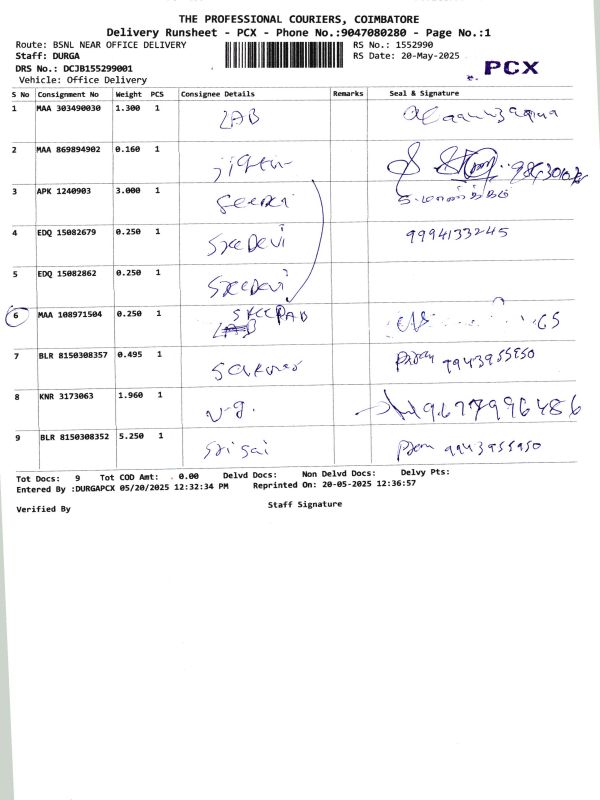 THE PROFESSIONAL COURIERS, COIMBATORE
Delivery Runsheet - PCX - Phone No.:9047080280 - Page No.:1
Route: BSNL NEAR OFFICE DELIVERY RS No.: 1552990
Staff: DURGA RS Date: 20-May-2025
DRS No.: DCJB155299001 PCX
Vehicle: Office Delivery
S No Consignment No Weight PCS Consignee Details Remarks Seal & Signature
1 MAA 303490030 1.300 1 LAB
2 MAA 869894902 0.160 1
3 APK 1240903 3.000 1
4 EDQ 15082679 0.250 1 SreeDevi 9994133245
5 EDQ 15082862 0.250 1 SreeDevi
6 MAA 108971504 0.250 1
7 BLR 8150308357 0.495 1 9943955950
8 KNR 3173063 1.960 1 v.g. 9677996486
9 BLR 8150308352 5.250 1 Sri sai 9943955950
Tot Docs: 9 Tot COD Amt: 0.00 Delvd Docs: Non Delvd Docs: Delvy Pts:
Entered By :DURGAPCX 05/20/2025 12:32:34 PM Reprinted On: 20-05-2025 12:36:57
Verified By Staff Signature